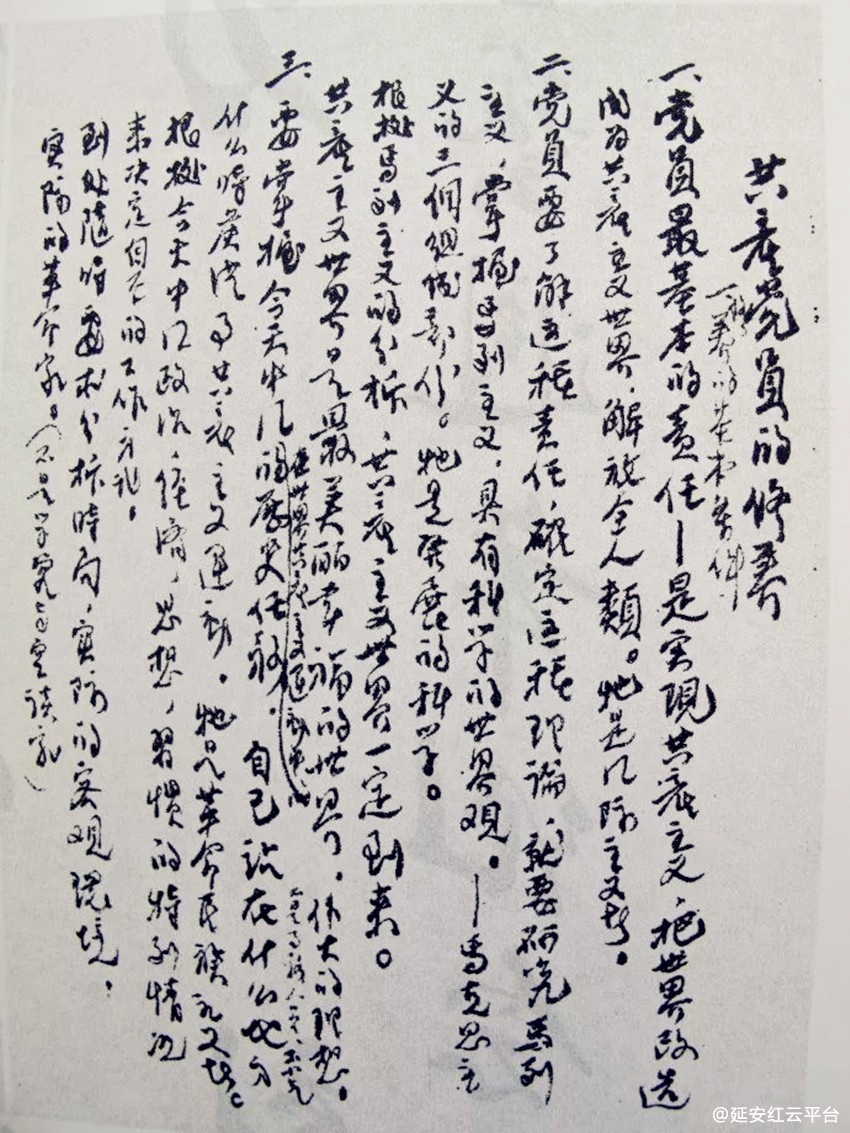 共产党员的修养
一、修养的基本条件
一、党员最基本的责任—是实现共产主义，把世界改造
成为共产主义世界，解放全人類。她是国际主义者。
二、党员要了解这种责任，确定这种理论，就要研究马列
主义，掌握马列主义，具有科学的世界观。—马克思主
义的三個组成部分。她是发展的科学。
根据马列主义的分析，共产主义世界一定到来。
共产主义世界是最美丽幸福的世界。伟大的理想。
三、要掌握今天中国的历史任务，自己站在什么地方
在世界共产主义运动中
什么时候从事共产主义运动。她是革命民族主义者。
根据今天中国政治，经济，思想，習慣的特别情况
来决定自己的工作方式。
到处随时要求分析时局，实际的客观环境，
实际的革命家。（不是学究与空谈家）
@延安红云平台